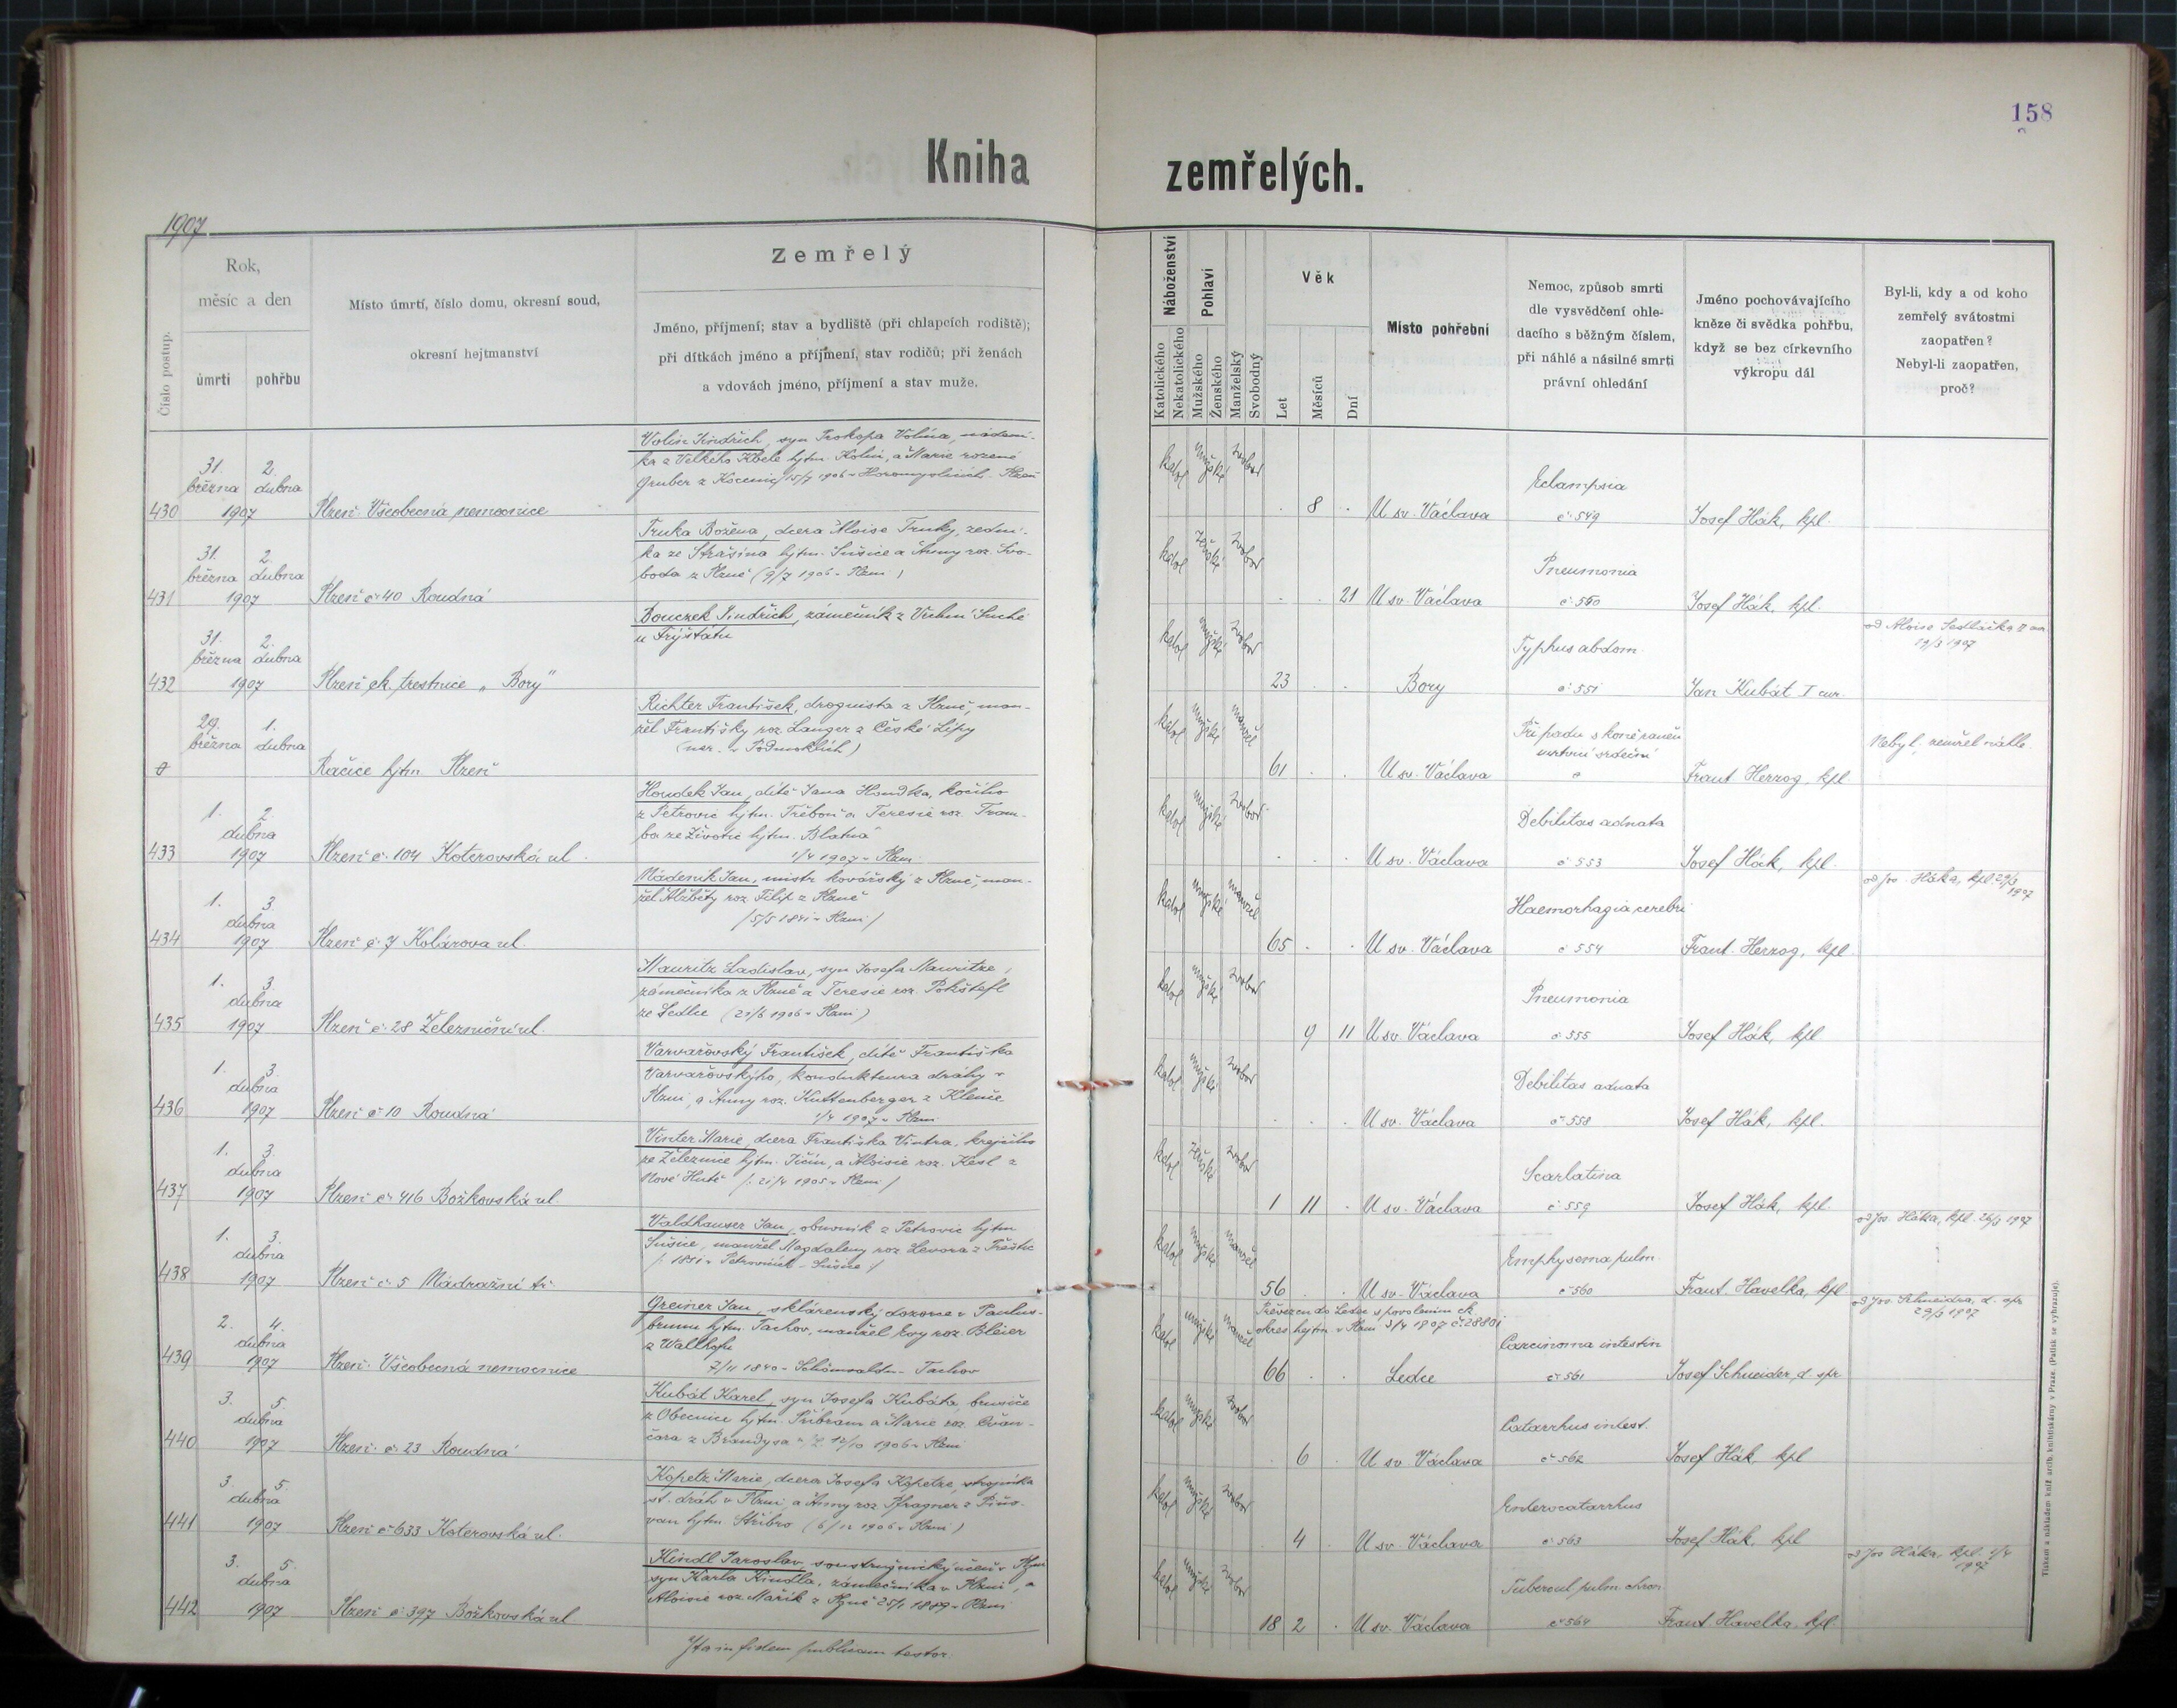 158
Kniha zemřelých.
1907
Číslo postup.
Rok,
měsíc a den
úmrtí
pohřbu
Místo úmrtí, číslo domu, okresní soud,
okresní hejtmanství
Zemřelý
Jméno, příjmení; stav a bydliště (při chlapcích rodiště);
při dítkách jméno a příjmení, stav rodičů; při ženách
a vdovách jméno, příjmení a stav muže.
Náboženství
Katolického
Nekatolického
Pohlaví
Mužského
Ženského
Manželský
Svobodný
Věk
Let
Měsíců
Dní
Místo pohřební
Nemoc, způsob smrti
dle vysvědčení ohle-
dacího s běžným číslem,
při náhlé a násilné smrti
právní ohledání
Jméno pochovávajícího
kněze či svědka pohřbu,
když se bez církevního
výkropu dál
Byl-li, kdy a od koho
zemřelý svátostmi
zaopatřen?
Nebyl-li zaopatřen,
proč?
430
31. března
2. dubna
1907
Plzeň. Všeobecná nemocnice
Volin Jindřich, syn Prokopa Volína, nádení-
ka z Velkého hejtm. Kolín, a Marie rozené
Gruber z
katol mužské svobod
8
U sv. Václava
Eclampsia
č. 549
Josef Hák, kpl.
431
31. března
2. dubna
1907
Plzeň č. 40 Roudná
Truka Božena, dcera Aloise Truky, zední-
ka ze Strašína hejtm. Sušice a Anny roz. Svo-
boda z Plzně (9/3 1906 v Plzni)
katol ženské svobod
21
U sv. Václava
Pneumonia
č. 550
Josef Hák, kpl.
432
31. března
2. dubna
1907
Plzeň ck. trestnice „Bory"
Bouczek Jindřich, zámečník z Suché
u Frýštátu
katol mužské svobod
23
Bory
Typhus abdom.
č. 551
Jan Kubát I cur.
od Aloise Sedláčka II cur.
19/3 1907
29. března
1. dubna
Račice hejtm. Plzeň
Richter František, droguista z Plzně, man-
žel Františky roz. Langer z České Lípy
(nar. v Podmoklích)
katol mužské manžel
61
U sv. Václava
Při pádu s koně
srdeční
č
Frant Herzog, kpl.
Nebyl, zemřel náhle.
433
1. 2.
dubna
1907
Plzeň č. 104 Koterovská ul.
Houdek Jan, dítě Jana Houdka, kočího
z Petrovic hejtm. Třeboň a Teresie roz.
ze Životic hejtm. Blatná
1/4 1907 v Plzni
katol mužské svobod
U sv. Václava
Debilitas adnata
č. 553
Josef Hák, kpl.
434
1. 3.
dubna
1907
Plzeň č. 7 Kolárova ul.
Nádeník Jan, mistr kovářský z Plzně, man-
žel Alžběty roz. Filip z Plzně
/5/5 1841 v Plzni/
katol mužské manžel
65
U sv. Václava
Haemorhagia cerebri
č 554
Frant. Herzog, kpl.
od Jos. Háka, kpl. 29/3
1907
435
1. 3.
dubna
1907
Plzeň č. 28 Železniční ul.
Mauritz Ladislav, syn Josefa Mauritze,
zámečníka z Plzně a Teresie roz.
ze Sedlce (21/6 1906 v Plzni)
katol mužské svobod
9 11
U sv. Václava
Pneumonia
č 555
Josef Hák, kpl
436
1. 3.
dubna
1907
Plzeň č 10 Roudná
Varvařovský František, dítě Františka
Varvařovskýho, kondukteura dráhy v
Plzni, a Anny roz. Kuttenberger z Kleneč
1/4 1907 v Plzni
katol mužské svobod
U sv. Václava
Debilitas adnata
č 558
Josef Hák, kpl.
437
1. 3.
dubna
1907
Plzeň č. 416 Božkovská ul.
Vinter Marie, dcera Františka Vintra, krejčího
ze Železnice hejtm. Jičín, a Aloisie roz. Kesl z
Nové Hutě /: 21/4 1905 v Plzni/
katol ženské svobod
1 11
U sv. Václava
Scarlatina
č 559
Josef Hák, kpl.
438
1. 3.
dubna
1907
Plzeň č. 5 Nádražní tř.
Valdhauser Jan, obuvník z Petrovic hejtm
Sušice, manžel Magdaleny roz Levora z
/: 1851 v Petrovicích - Sušice :/
katol mužské manžel
56
U sv. Václava
Emphysema pulm.
č 560
Frant Havelka, kpl
od Jos. Háka, kpl. 26/3 1907
439
2. 4.
dubna
1907
Plzeň. Všeobecná nemocnice
Greiner Jan, sklárenský dozorce v Paulus-
brunnu hejtm. Tachov, manžel Evy roz. Bleier
z Wallhofu
2/11 1840 v Schönwaldu - Tachov
katol mužské manžel
66
Převezen do Ledce s povolením ck
okres. hejtm. v Plzni 3/4 1907 č. 28801
Ledce
Carcinoma intestin
č 561
Josef Schneider, d. spr
od Jos. Schneidra, d. spr
29/3 1907
440
3. 5.
dubna
1907
Plzeň. č. 23 Roudná
Kubát Karel, syn Josefa Kubáta, brusiče
z Obecnice hejtm. Příbram a Marie roz. Ovčan-
čara z Brandýsa 12/10 1906 v Plzni
katol mužské svobod
6
U sv. Václava
Catarrhus intest.
č 562
Josef Hák, kpl
441
3. 5.
dubna
1907
Plzeň č 633 Koterovská ul.
Kopetz Marie, dcera Josefa Kopetze, strojníka
st. dráh v Plzni, a Anny roz. Pfragner z
hejtm Stříbro (6/12 1906 v Plzni)
katol mužské svobod
4
U sv. Václava
Enterocatarrhus
č 563
Josef Hák, kpl
442
3. 5.
dubna
1907
Plzeň č. 397 Božkovská ul.
Kindl Jaroslav, soustružnický učeň v Plzni
syn Karla Kindla, zámečníka v Plzni, a
Aloisie roz. Mařík z Plzně 25/1 1889 v Plzni
katol mužské svobod
18 2
U sv. Václava
Tubercul pulm. chron.
č 564
Frant. Havelka, kpl.
od Jos Háka, kpl. 1/4
1907
Ita in fidem publicam testor.
Tiskem a nákladem kníž. arcib. knihtiskárny v Praze. (Patisk se vyhrazuje).